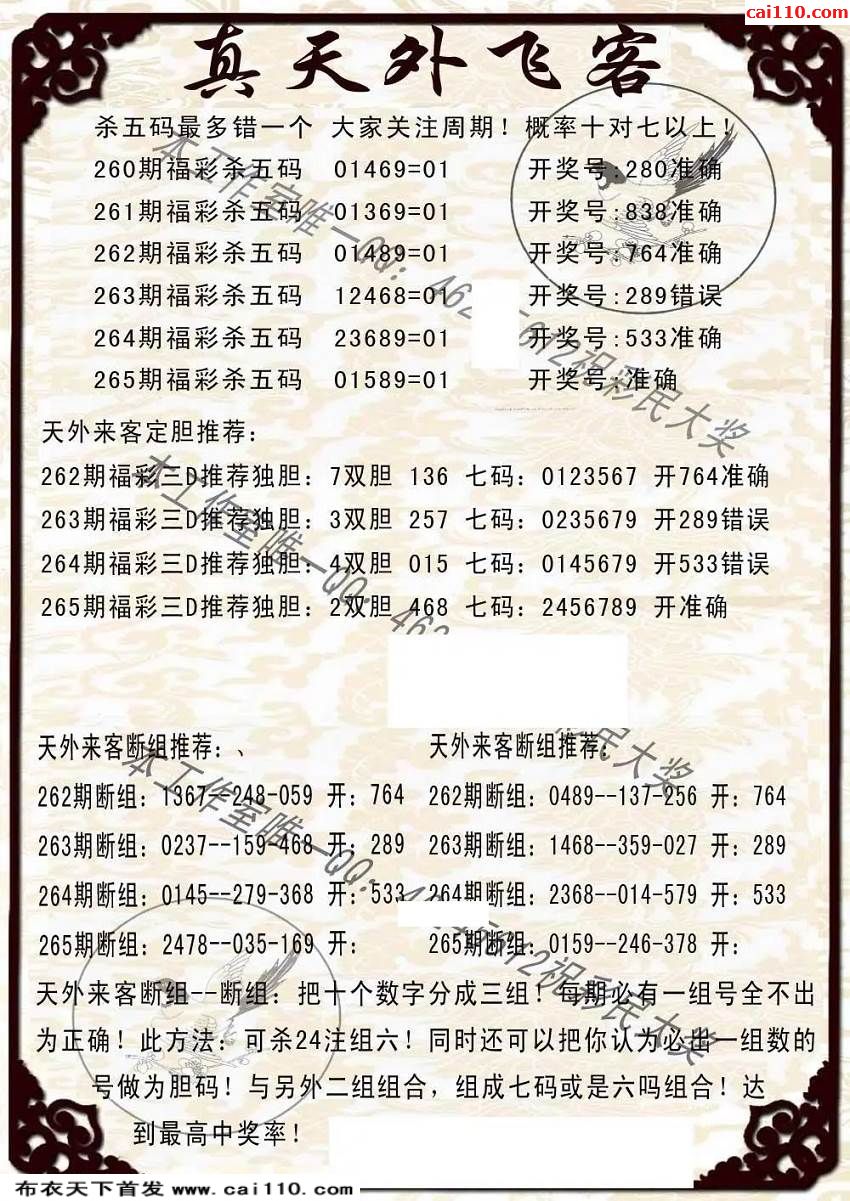 cai110.com
真天外飞客
杀五码最多错一个 大家关注周期！概率十对七以上！
260期福彩杀五码 01469=01 开奖号:280准确
261期福彩杀五码 01369=01 开奖号:838准确
262期福彩杀五码 01489=01 开奖号:764准确
263期福彩杀五码 12468=01 开奖号:289错误
264期福彩杀五码 23689=01 开奖号:533准确
265期福彩杀五码 01589=01 开奖号:准确
天外来客定胆推荐：
262期福彩三D推荐独胆：7双胆 136 七码：0123567 开764准确
263期福彩三D推荐独胆：3双胆 257 七码：0235679 开289错误
264期福彩三D推荐独胆：4双胆 015 七码：0145679 开533错误
265期福彩三D推荐独胆：2双胆 468 七码：2456789 开准确
天外来客断组推荐：、 天外来客断组推荐：
262期断组：1367--248-059 开：764 262期断组：0489--137-256 开：764
263期断组：0237--159-468 开：289 263期断组：1468--359-027 开：289
264期断组：0145--279-368 开：533 264期断组：2368--014-579 开：533
265期断组：2478--035-169 开： 265期断组：0159--246-378 开：
天外来客断组--断组：把十个数字分成三组！每期必有一组号全不出
为正确！此方法：可杀24注组六！同时还可以把你认为必出一组数的
号做为胆码！与另外二组组合，组成七码或是六吗组合！达
到最高中奖率！
本工作室唯一QQ：462 5612祝彩民大奖
本工作室唯一QQ：462 彩民大奖
本工作室唯一QQ：462 5612祝彩民大奖
布衣天下首发 www.cai110.com